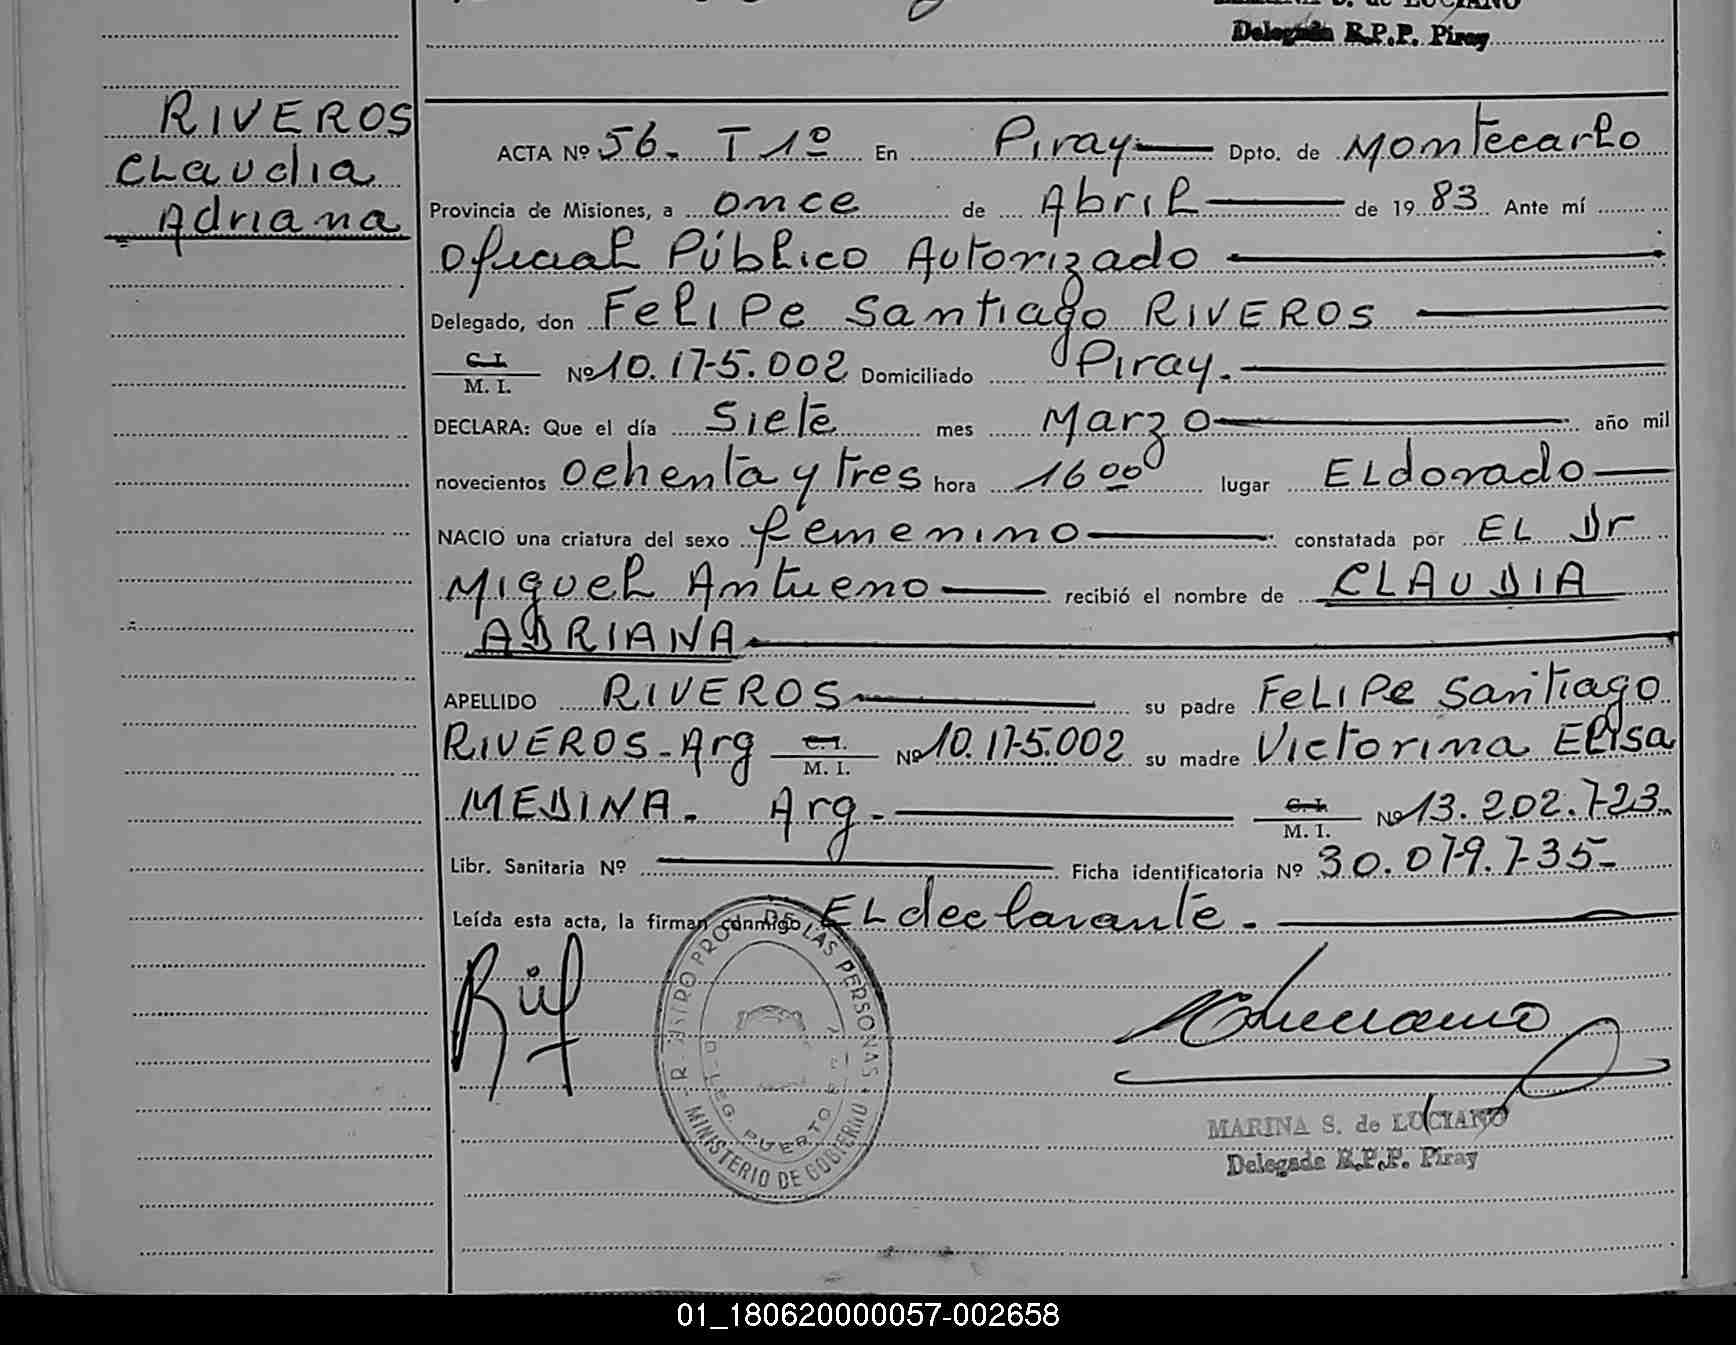 MARINA S. de LUCIANO
Delegada R.P.P. Piray
RIVEROS
Claudia
Adriana
ACTA Nº 56. T 1º En Piray Dpto. de Montecarlo
Provincia de Misiones, a once de Abril de 1983 Ante mí
Oficial Público Autorizado
Delegado, don Felipe Santiago RIVEROS
C. I.
M. I. Nº 10.175.002 Domiciliado Piray.
DECLARA: Que el día Siete mes Marzo año mil
novecientos ochenta y tres hora 16 00 lugar Eldorado
NACIO una criatura del sexo femenino constatada por EL Dr
Miguel Antueno recibió el nombre de CLAUDIA
ADRIANA
APELLIDO RIVEROS su padre Felipe Santiago
RIVEROS - Arg C. I. M. I. Nº 10.175.002 su madre Victorina Elisa
MEDINA. Arg. C. I. M. I. Nº 13.202.723.
Libr. Sanitaria Nº Ficha identificatoria Nº 30.079.735-
Leída esta acta, la firman conmigo EL declarante.
REGISTRO PROV. DE LAS PERSONAS
DELEG. PUERTO
MINISTERIO DE GOBIERNO
MARINA S. de LUCIANO
Delegada R.P.P. Piray
01_180620000057-002658